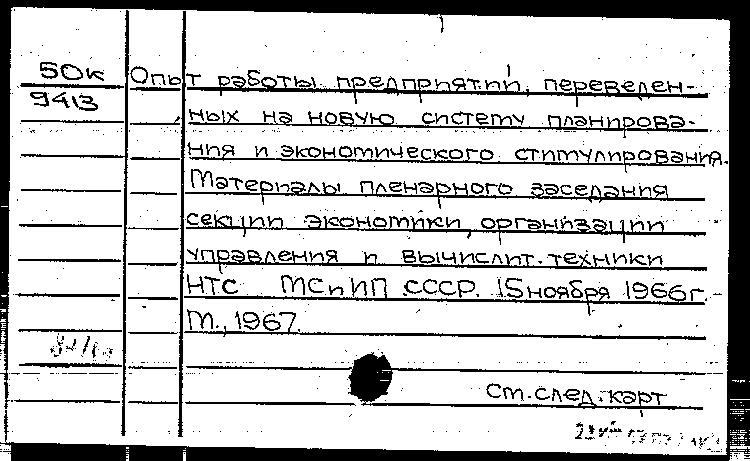 50к Опыт работы предприятий, переведен-
9413 ных на новую систему планирова-
ния и экономического стимулирования.
Материалы пленарного заседания
секции экономики, организации
управления и вычислит. техники
НТС МСиИП СССР. 15 ноября 1966г.
М., 1967.
См. след. карт